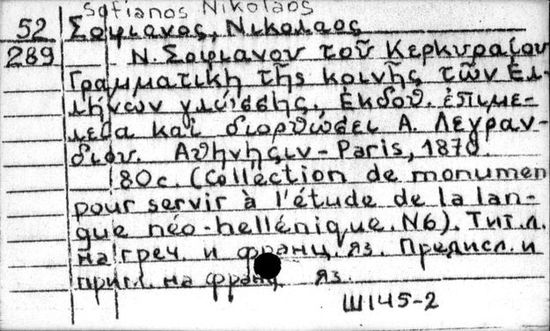 Sofianos Nikolaos
52 Σοφιανος, Νικολαος
289 Ν. Σοφιανου τοῦ Κερκυραίου
Γραμματικὴ τῆς κοινῆς τῶν Ἑλ-
λήνων γλώσσης. Ἐκδοθ. ἐπιμε-
λεία καὶ διορθώσει Α. Λεγραν-
δίου. Ἀθήνησιν – Paris, 1870.
180c. (Collection de monumen
pour servir à l'étude de la lan-
gue néo-hellénique. N6). Тит. л.
на греч. и франц. яз. Предисл. и
прил. на франц. яз.
Ш145-2